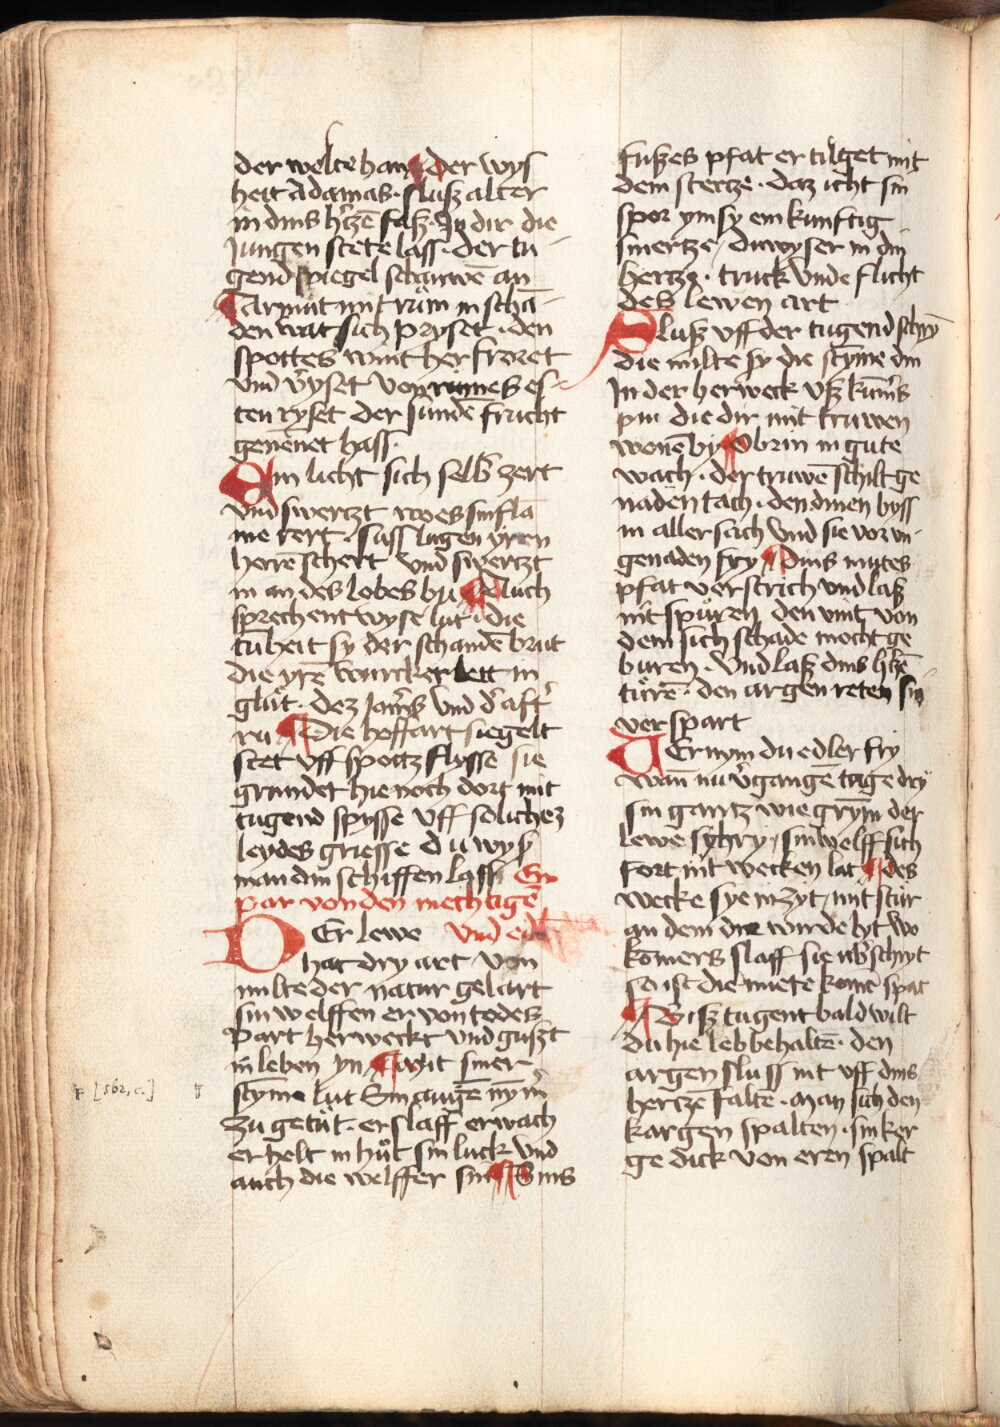 der welte han der wys
heit Adamas · sluß alter
in dins hʼtzē faß · In dir die
Jungen stete lass · der tu-
gend spiegel schauwē an
armůt mit rům in schā-
den wat sich pryset · den
spottes wint her freret
und vʼyset von rumes es-
ten ryset der sündē frucht
genēnet hass ·
Ein licht sich selbʼ zert
und swertzt wo es sin flā
me rert · suss lugen yren
herrē schert und swertzt
in an des lobes bu
sprechent wyse lut · die
tūheit sy der schandē brut
die yrē wurcker lett in
glůt · dez Jamʼs und dʼ afft
ru die hoffart siegelt
stet uff spottz flysse sie
grundet hie noch dort mit
tugend spysse uff solichez
leydes griesse du wys
man din schiffen lass Ein
par von den mechtigē
Er lewe und
hat dry art von
milte der natur gelart
sin welffen er von todes
part herweckt und gußt
in leben yn mit siner
stȳme lut Sin augē nȳmʼ
zu getůt · er slaff er wach
er helt in hůt sin luck und
auch die welffer sin Sins
fußes pfat er tilget mit
dem stertze · daz icht sin
spor ym sy ein kunfftig
smertze / du wyser in din
hertze · truck unde flicht
des lewen art
Sluß uff der tugend schrȳ
die milte sy die stȳme din
In der herweck uß kūmʼs
pin die dir mit truwen
wonē by brin in gute
wach · der truwē schilt ge
naden tach · den dinen byss
in aller sach und sie vor un-
genaden fry dins mutes
pfat verstrich und laß
nit spüren den vint von
dem sich schade mocht ge
buren · und laß dins hʼtzē
türē · den argen reten sin
verspart
Vernym du edler fry
wan nu vʼgangē tage dry
sin gantz wie grȳm der
lewē schry / sin welff sich
fort nit wecken lat des
wecke sye in zyt / mit stür
an dem din wirde lyt wo
komers slaff sie ubʼschryt
so ist die miete komē spat
Biß tugent bald wilt
du hie leb behaltē · den
argen sluss nit uff dins
hertze faltē · man sich den
kargen spalten · sin ker
ge dick von eren spalt
[562, c.]